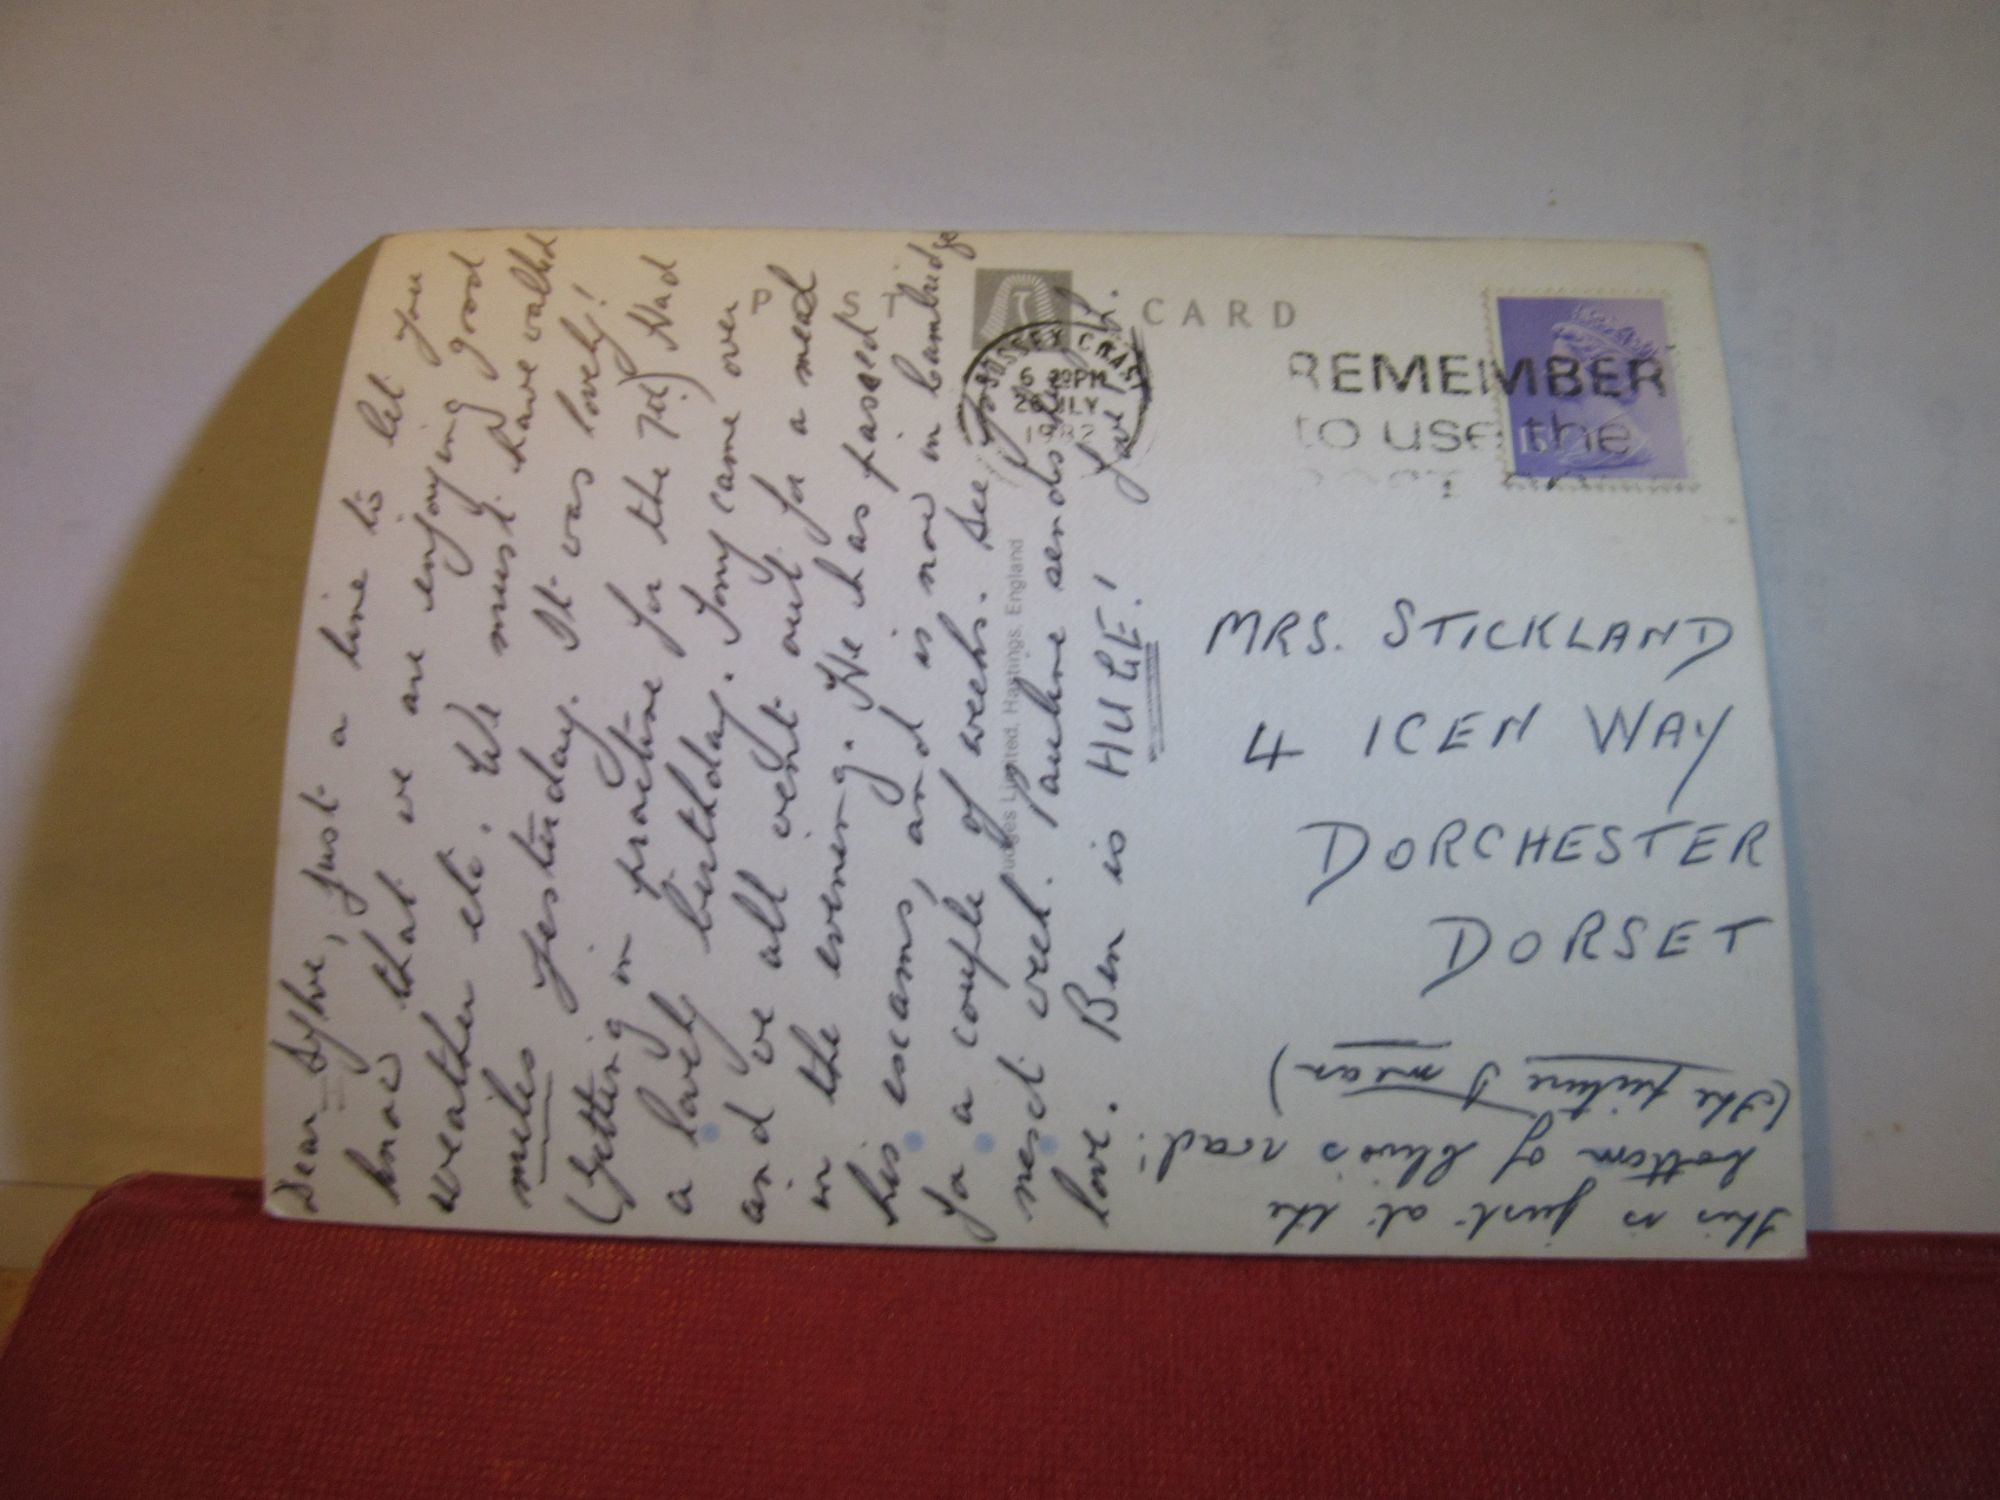 POST CARD
Dear Sylve, just a line to let you
know that we are enjoying good
weather etc. We must have walked
miles yesterday. It was lovely!
(Getting in practise for the 7th!) Had
a lovely birthday. Tony came over
and we all went out for a meal
in the evening. He has passed
his exams, and is now in Cambridge
for a couple of weeks. See you
next week. Pauline sends her
love. Ben is HUGE! Love
Judges Limited, Hastings, England
SUSSEX COAST
6 PM
REMEMBER
to use the
MRS. STICKLAND
4 ICEN WAY
DORCHESTER
DORSET
This is just at the
bottom of Clive's road.
(The picture I mean)